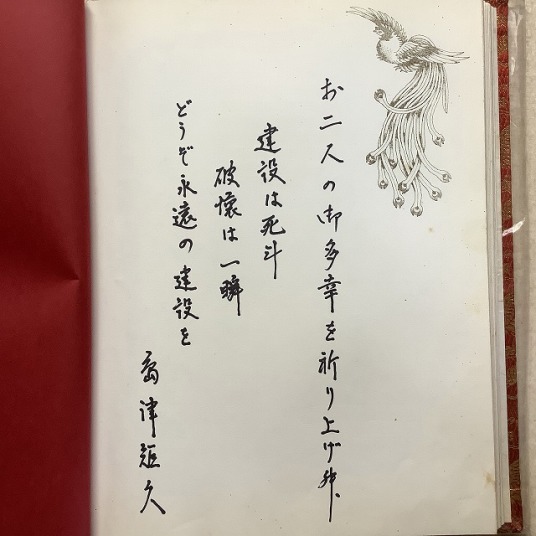 お二人の御多幸を祈り上げ舛
建設は死斗
破懐は一瞬
どうぞ永遠の建設を
島津矩久